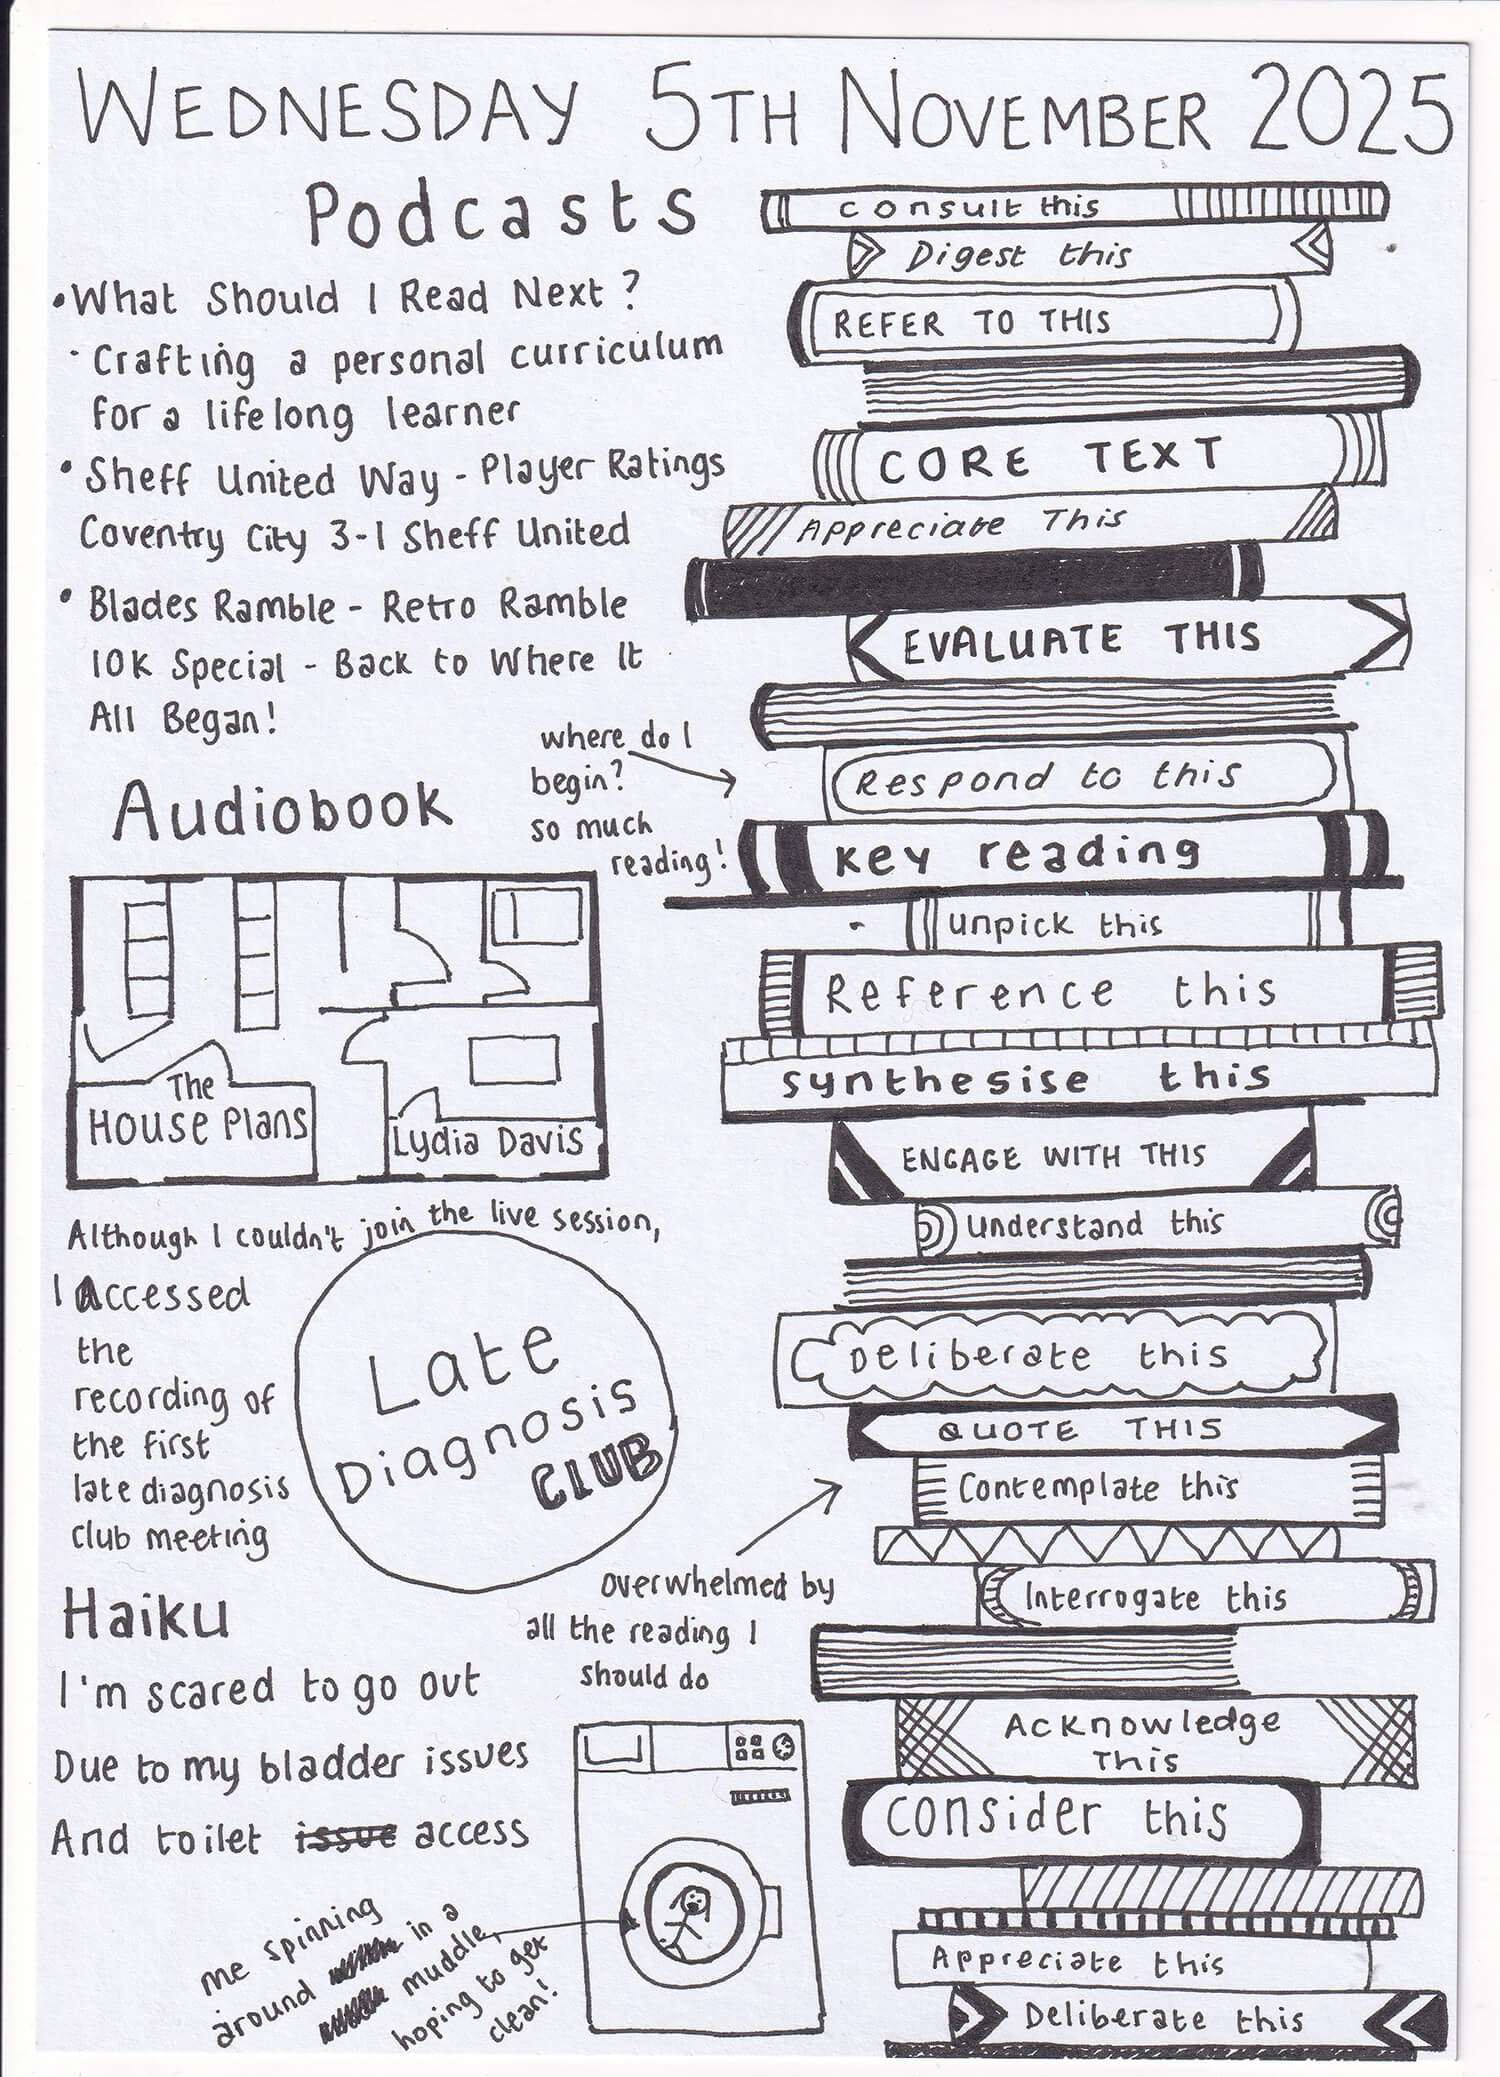 WEDNESDAY 5TH NOVEMBER 2025
Podcasts
• What Should I Read Next?
- Crafting a personal curriculum
for a lifelong learner
• Sheff United Way - Player Ratings
Coventry City 3-1 Sheff United
• Blades Ramble - Retro Ramble
10K Special - Back to Where It
All Began!
where do I
begin?
so much
reading!
Audiobook
The
House Plans
Lydia Davis
Although I couldn't join the live session,
I accessed
the
recording of
the first
late diagnosis
club meeting
Late
Diagnosis
CLUB
overwhelmed by
all the reading I
should do
Haiku
I'm scared to go out
Due to my bladder issues
And toilet issue access
me spinning
around in a
muddle,
hoping to get
clean!
consult this
Digest this
REFER TO THIS
CORE TEXT
Appreciate This
EVALUATE THIS
Respond to this
Key reading
unpick this
Reference this
synthesise this
ENGAGE WITH THIS
Understand this
Deliberate this
QUOTE THIS
Contemplate this
Interrogate this
Acknowledge
This
Consider this
Appreciate this
Deliberate this